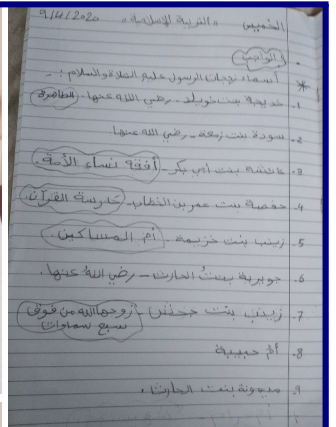 9/4/2020 الخميس "التربية الإسلامية"
الواجب
* أسماء زوجات الرسول عليه الصلاة والسلام :-
1. خديجة بنت خويلد - رضي الله عنها - (الطاهرة)
2. سودة بنت زمعة - رضي الله عنها
3. عائشة بنت أبي بكر - (أفقه نساء الأمة.)
4. حفصة بنت عمر بن الخطاب - (حارسة القرآن.)
5. زينب بنت خزيمة - (أم المساكين.)
6. جويرية بنت الحارث - رضي الله عنها.
7. زينب بنت جحش - (زوجها الله من فوق
سبع سماوات)
8. أم حبيبة
9. ميمونة بنت الحارث.